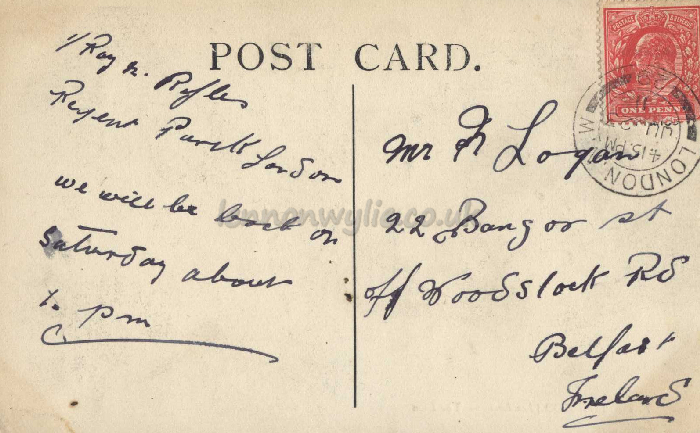 POST CARD.
1/ Roy n. Rifles
Regent Park London
we will be back on
Saturday about
7. pm
Mr F Logan
22 Bangor st
off Woodstock Rd
Belfast
Ireland
ONE PENNY
LONDON
4.15 PM
lennonwylie.co.uk